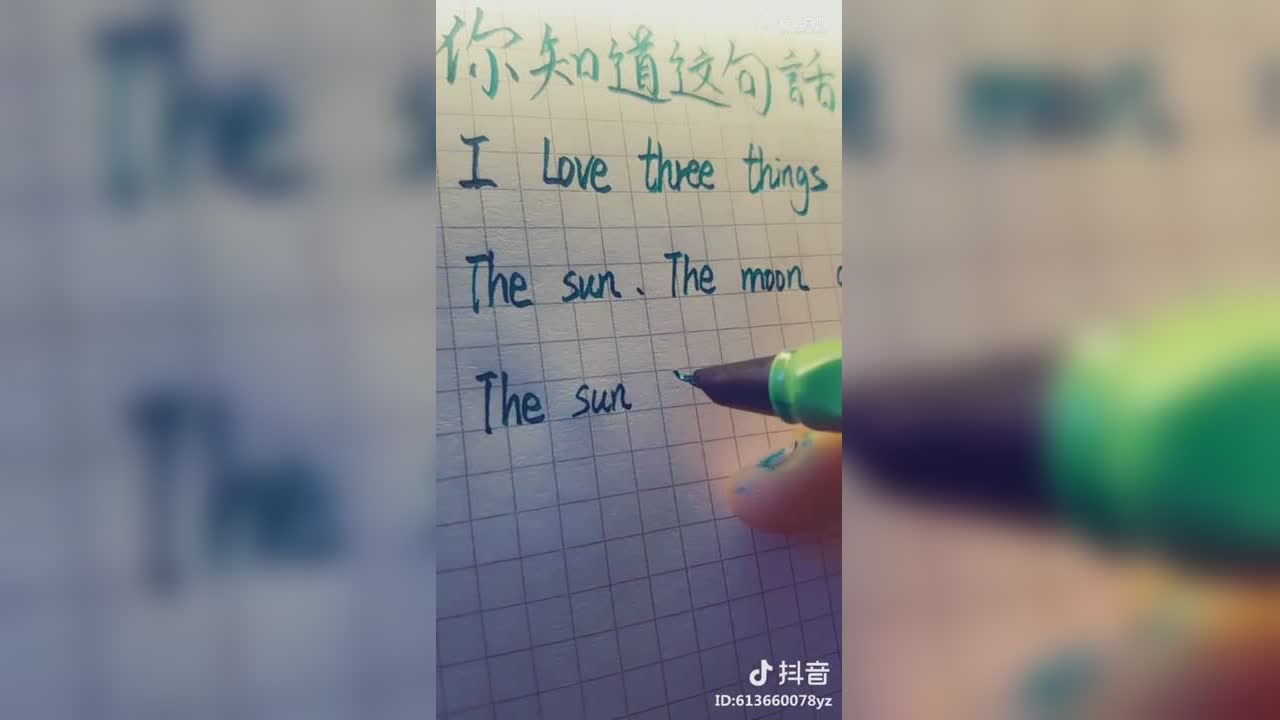 你知道这句話
I Love three things
The sun、The moon
The sun
抖音
ID:613660078yz